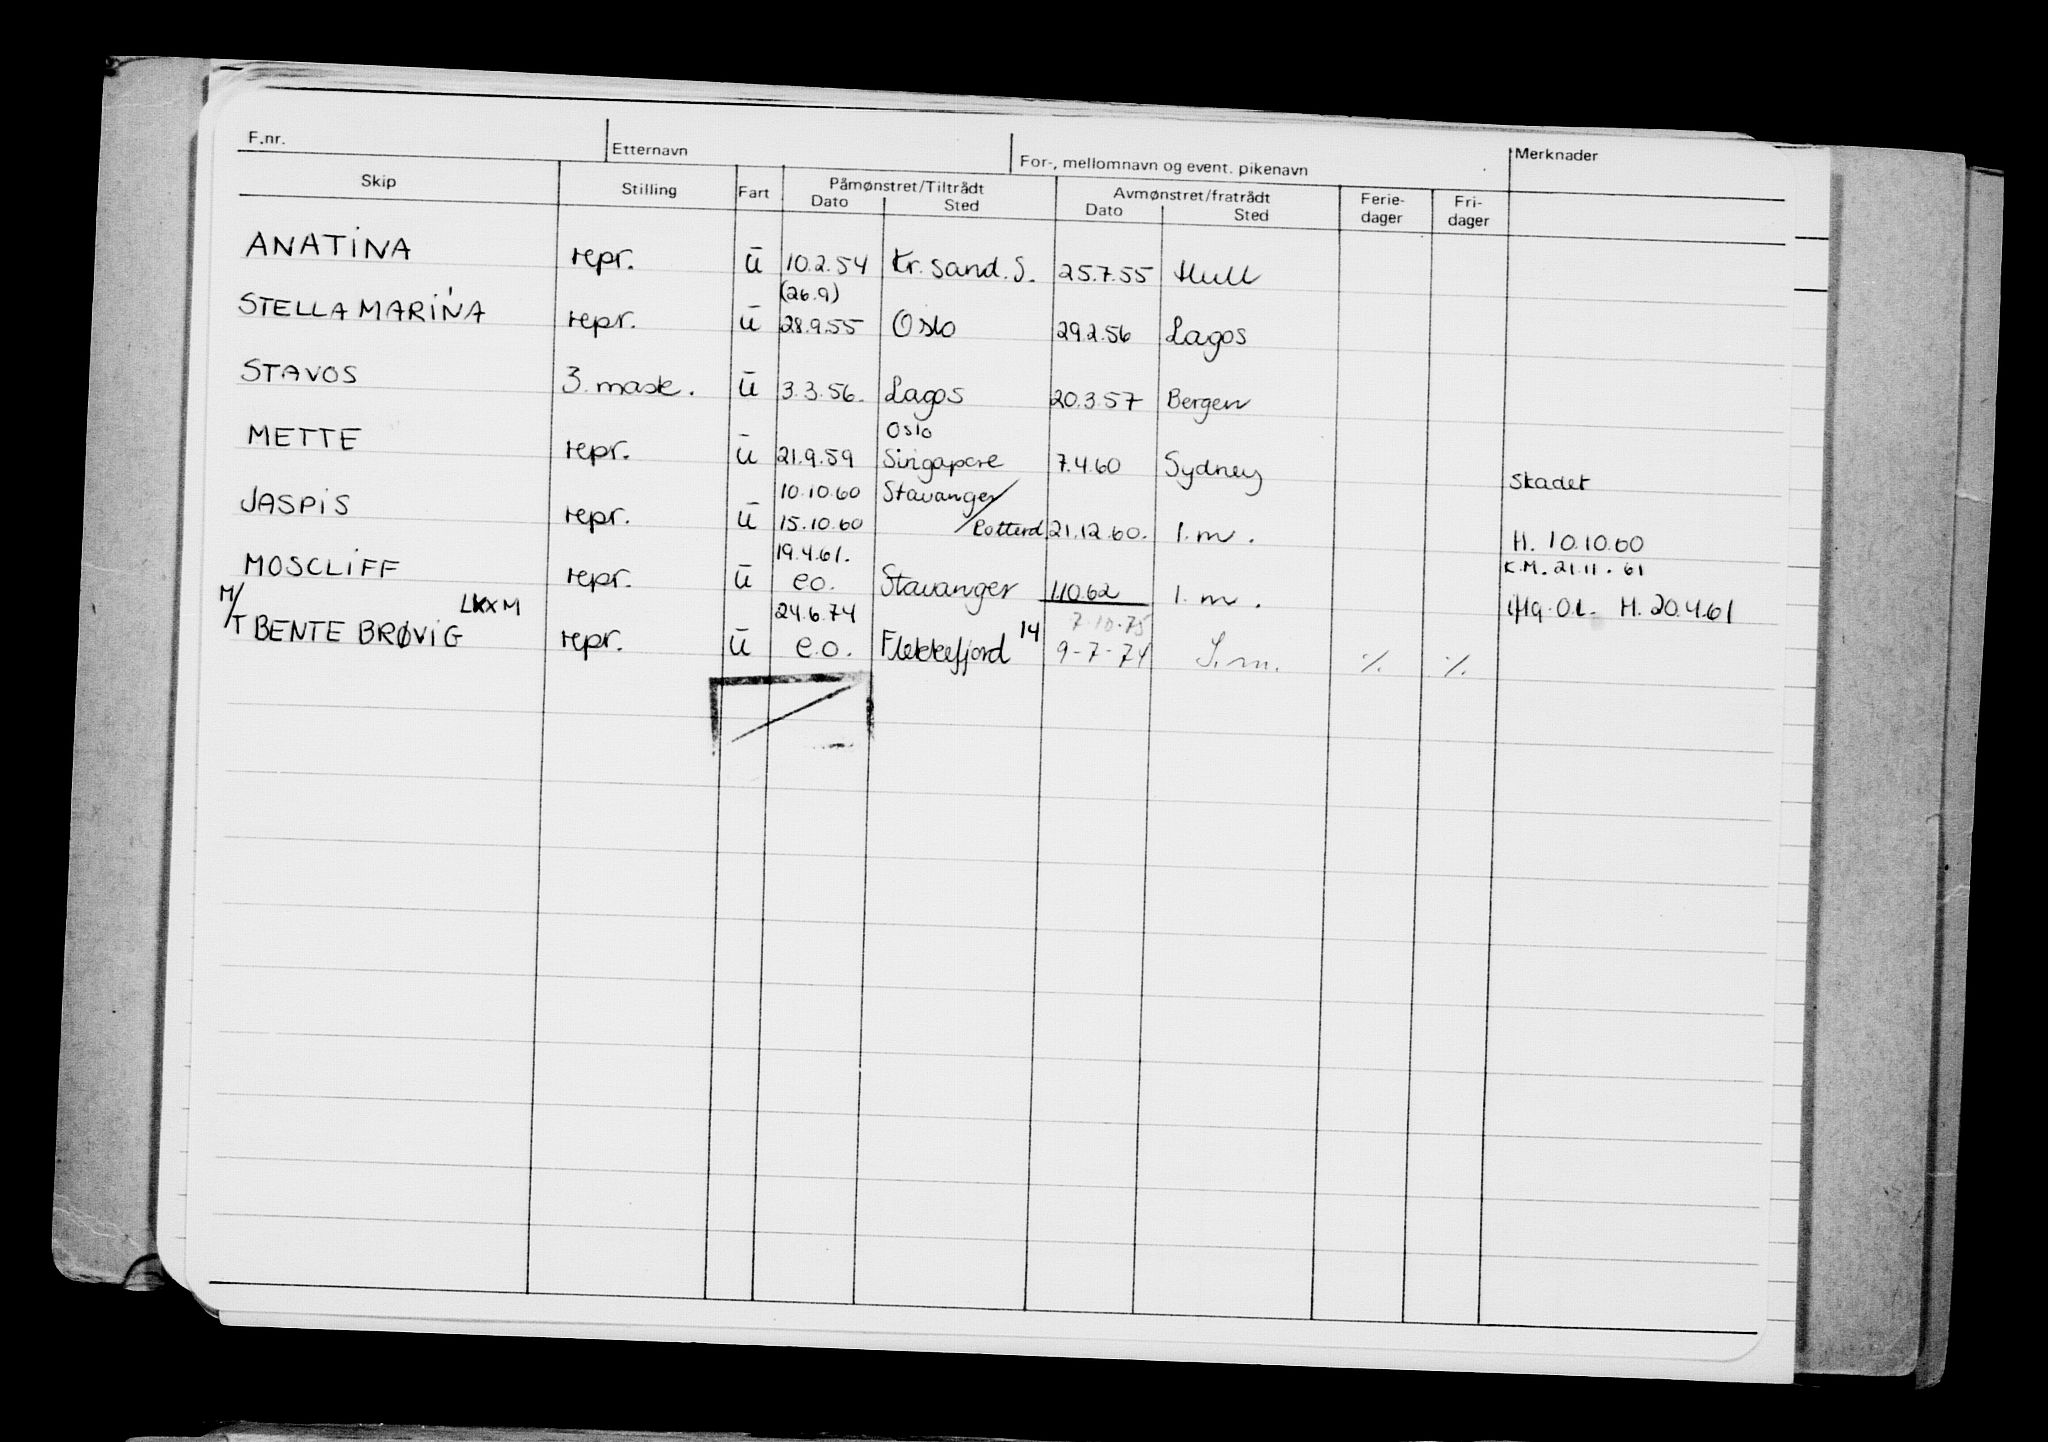 F.nr. Etternavn For-, mellomnavn og event. pikenavn Merknader
Skip Stilling Fart Påmønstret/Tiltrådt Avmønstret/fratrådt Ferie- Fri-
Dato Sted Dato Sted dager dager
ANATINA repr. ū 10.2.54 Kr.sand.S. 25.7.55 Hull
(26.9)
STELLA MARINA repr. ū 28.9.55 Oslo 29.2.56 Lagos
STAVOS 3. mask. ū 3.3.56. Lagos 20.3.57 Bergen
Oslo
METTE repr. ū 21.9.59 Singapore 7.4.60 Sydney Skadet
10.10.60 Stavanger/
JASPIS repr. ū 15.10.60 Rotterd 21.12.60. I.m. H. 10.10.60
19.4.61. K.M. 21.11.61
MOSCLIFF repr. ū e.o. Stavanger 1.10.62 I.m. O.L. H. 20.4.61
M/ LKXM 24.6.74 14 7.10.75
T BENTE BRØVIG repr. ū e.o. Flekkefjord 9-7-74 S.m. % %